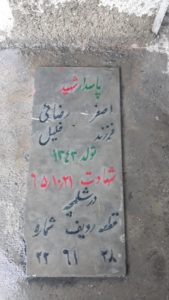 پاسدار شهید
اصغر رضائی
فرزند خلیل
تولد ۱۳۴۳
شهادت ۶۵/۱۰/۲۱
در شلمچه
قطعه ردیف شماره
۲۸ ۹۱ ۲۲